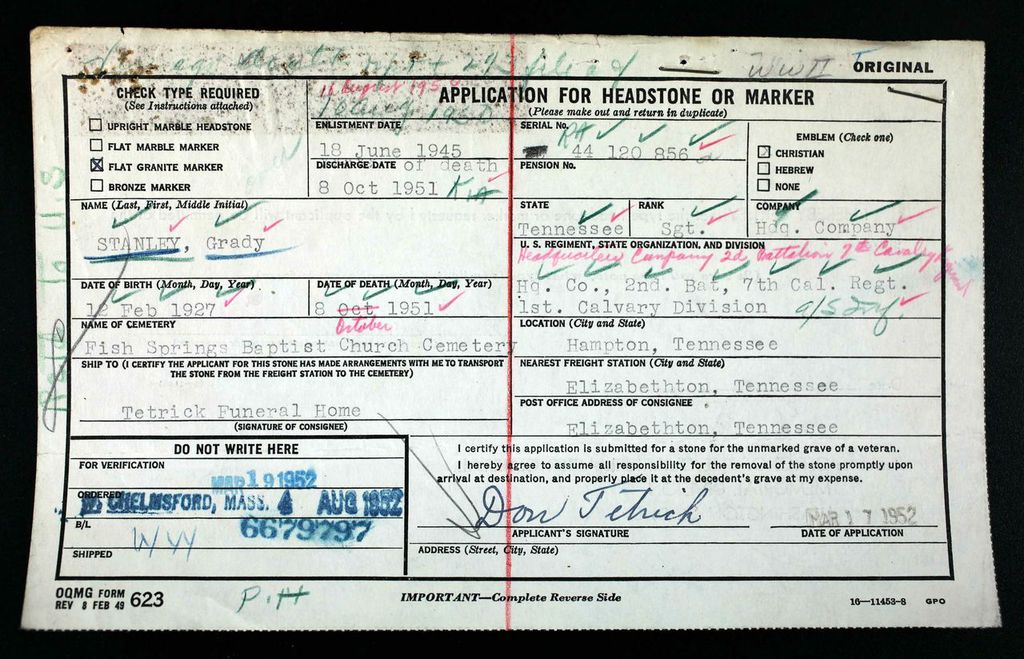 WW II ORIGINAL
CHECK TYPE REQUIRED
(See Instructions attached)
UPRIGHT MARBLE HEADSTONE
FLAT MARBLE MARKER
☒ FLAT GRANITE MARKER
BRONZE MARKER
11 August 1950
ENLISTMENT DATE
18 June 1945
DISCHARGE DATE of death
8 Oct 1951 KIA
APPLICATION FOR HEADSTONE OR MARKER
(Please make out and return in duplicate)
SERIAL No. RA
44 120 856
PENSION No.
EMBLEM (Check one)
CHRISTIAN
HEBREW
NONE
NAME (Last, First, Middle Initial)
STANLEY, Grady
STATE
Tennessee
RANK
Sgt.
COMPANY
Hdq. Company
U. S. REGIMENT, STATE ORGANIZATION, AND DIVISION
Headquarters Company 2d Battalion 7th Cavalry Regiment
Hq. Co., 2nd. Bat, 7th Cal. Regt.
1st. Calvary Division
DATE OF BIRTH (Month, Day, Year)
12 Feb 1927
DATE OF DEATH (Month, Day, Year)
8 Oct 1951
October
NAME OF CEMETERY
Fish Springs Baptist Church Cemetery
LOCATION (City and State)
Hampton, Tennessee
SHIP TO (I CERTIFY THE APPLICANT FOR THIS STONE HAS MADE ARRANGEMENTS WITH ME TO TRANSPORT
THE STONE FROM THE FREIGHT STATION TO THE CEMETERY)
Tetrick Funeral Home
(SIGNATURE OF CONSIGNEE)
NEAREST FREIGHT STATION (City and State)
Elizabethton, Tennessee
POST OFFICE ADDRESS OF CONSIGNEE
Elizabethton, Tennessee
DO NOT WRITE HERE
FOR VERIFICATION
MAR 19 1952
ORDERED
CHELMSFORD, MASS. 4 AUG 1952
B/L
6679797
SHIPPED
I certify this application is submitted for a stone for the unmarked grave of a veteran.
I hereby agree to assume all responsibility for the removal of the stone promptly upon
arrival at destination, and properly place it at the decedent's grave at my expense.
Don Tetrick MAR 17 1952
APPLICANT'S SIGNATURE DATE OF APPLICATION
ADDRESS (Street, City, State)
OQMG FORM
REV 8 FEB 49 623
P.H
IMPORTANT—Complete Reverse Side
16—11453-8 GPO